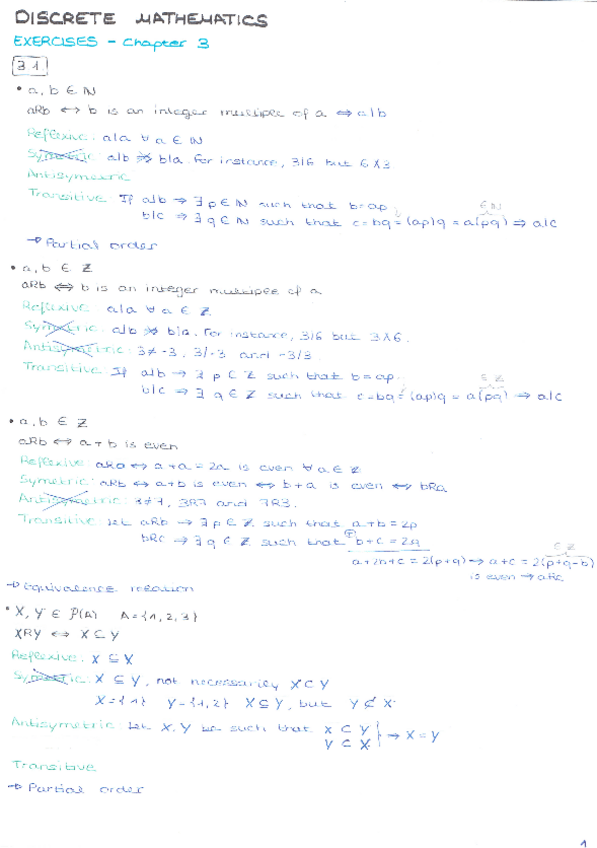 DISCRETE MATHEMATICS
EXERCISES - Chapter 3
3.1
• a, b ∈ ℕ
aRb ⟺ b is an integer multiple of a ⟺ a|b
Reflexive: a|a ∀ a ∈ ℕ
Symetric: a|b ⇏ b|a. For instance, 3|6 but 6∤3
Antisymetric
Transitive If a|b → ∃ p ∈ ℕ such that b=ap
b|c ⇒ ∃ q ∈ ℕ such that c=bq=(ap)q = a(pq) ⇒ a|c
∈ ℕ
→ Partial order
• a, b ∈ ℤ
aRb ⟺ b is an integer multiple of a
Reflexive a|a ∀ a ∈ ℤ
Symetric: a|b ⇏ b|a. For instance, 3|6 but 3∤6.
Antisymetric: 3≠-3, 3|-3 and -3|3
Transitive If a|b → ∃ p ∈ ℤ such that b=ap
b|c ⇒ ∃ q ∈ ℤ such that c=bq=(ap)q = a(pq) ⇒ a|c
∈ ℤ
• a, b ∈ ℤ
aRb ⟺ a+b is even
Reflexive: aRa ⟺ a+a=2a is even ∀ a ∈ ℤ
Symetric: aRb ⟺ a+b is even ⟺ b+a is even ⟺ bRa
Antisymetric: 3≠7, 3R7 and 7R3.
Transitive Let aRb → ∃ p ∈ ℤ such that a+b=2p
bRc → ∃ q ∈ ℤ such that b+c=2q
+
a+2b+c=2(p+q) → a+c=2(p+q-b)
∈ ℤ
is even → aRc
→ Equivalence relation
• X, Y ∈ P(A) A={1,2,3}
XRY ⟺ X ⊆ Y
Reflexive: X ⊆ X
Symetric: X ⊆ Y, not necessarily Y ⊂ X
X={1} Y={1,2} X ⊆ Y, but Y ⊄ X
Antisymetric: Let X, Y be such that X ⊂ Y
Y ⊂ X } → X=Y
Transitive
→ Partial order
1